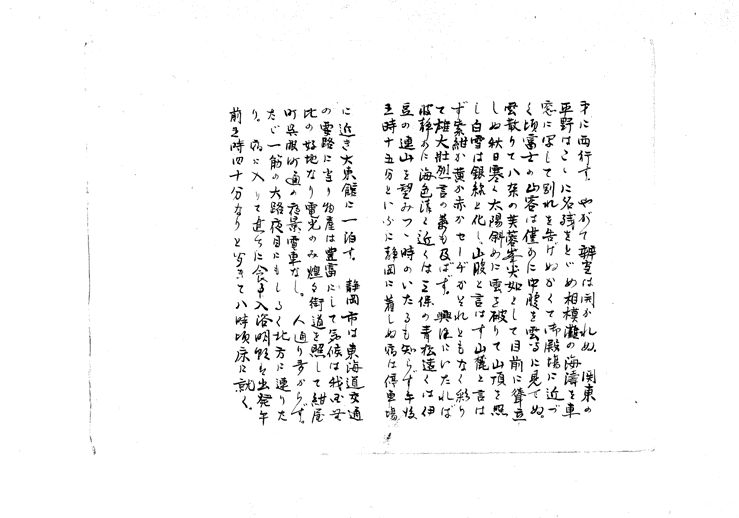 才に西行す、やがて辨当は開かれぬ、関東の
平野はこゝに名残をとどめ相模灘の海濤を車
窓に写して別れを告げぬかくて御殿場に近づ
く頃富士の山容は僅かに中腹を雲間に見でぬ。
雲散りて八朶の芙蓉峯尖如として目前に聳立
しぬ秋日寒く太陽斜めに雲を破りて山頂を照
し白雪は銀絲と化し、山腹と言はず山麓と言は
ず紫紺か黄か赤かセーザかそれともなく彩り
て雄大壮烈言の葉も及ばず。興津にいたれば
波静かに海色清く近くは三保の青松遠くは伊
豆の連山を望みつゝ時のいたるも知らず午後
五時十五分といふに静岡に着しぬ宿は停車場
に近き大東館に一泊す。静岡市は東海道交通
の要路に当り物産は豊富にして気候は我国無
比の好地なり電光のみ煌々街道を照して紺屋
町呉服町通の夜景電車なし。人通り多からず。
たゞ一筋の大路夜目にもしるく北方に連りた
り。宿に入りて直ちに食事入浴明朝を出発午
前五時四十分なりと聞きて八時頃床に就く。